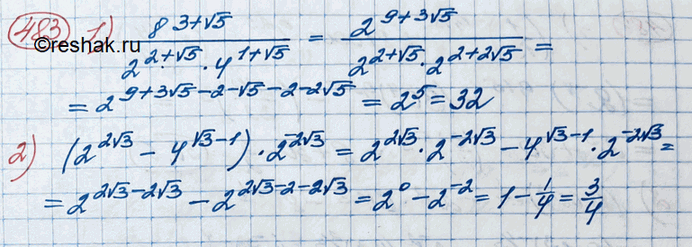 483 1) 8^(3+√5) / (2^(2+√5) · 4^(1+√5)) = 2^(9+3√5) / (2^(2+√5) · 2^(2+2√5)) =
©reshak.ru
= 2^(9+3√5−2−√5−2−2√5) = 2^5 = 32
2) (2^(2√3) − 4^(√3−1)) · 2^(−2√3) = 2^(2√3) · 2^(−2√3) − 4^(√3−1) · 2^(−2√3) =
= 2^(2√3−2√3) − 2^(2√3−2−2√3) = 2^0 − 2^(−2) = 1 − 1/4 = 3/4